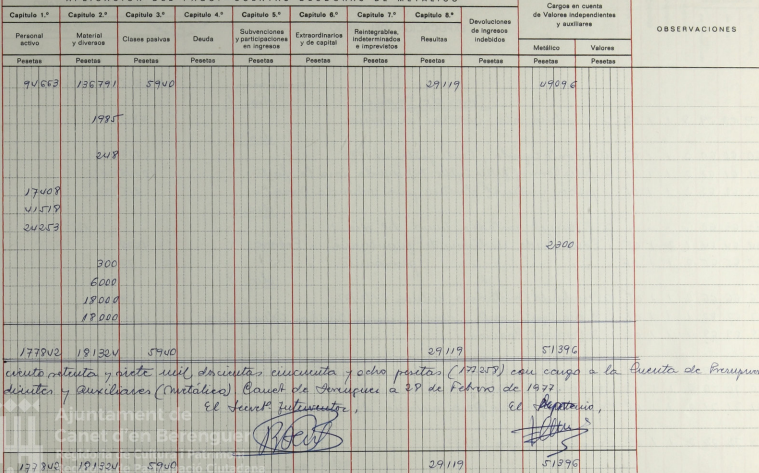 Capítulo 1.º Capítulo 2.º Capítulo 3.º Capítulo 4.º Capítulo 5.º Capítulo 6.º Capítulo 7.º Capítulo 8.º Devoluciones de ingresos indebidos Cargos en cuenta de Valores independientes y auxiliares OBSERVACIONES
Personal activo Material y diversos Clases pasivas Deuda Subvenciones y participaciones en ingresos Extraordinarios y de capital Reintegrables, indeterminados e imprevistos Resultas Metálico Valores
Pesetas Pesetas Pesetas Pesetas Pesetas Pesetas Pesetas Pesetas Pesetas Pesetas Pesetas
94663 136791 5940 29119 49096
1985
248
17408
41518
24253
2300
300
6000
18000
18000
177842 181324 5940 29119 51396
ciento setenta y siete mil doscientas cincuenta y ocho pesetas (177258) con cargo a la Cuenta de
y auxiliares (metálico) Canet de Berenguer a 28 de Febrero de 1977
El Secret. Interventor, El
Ajuntament de
Canet d'en Berenguer
177842 181324 5940 29119 51396